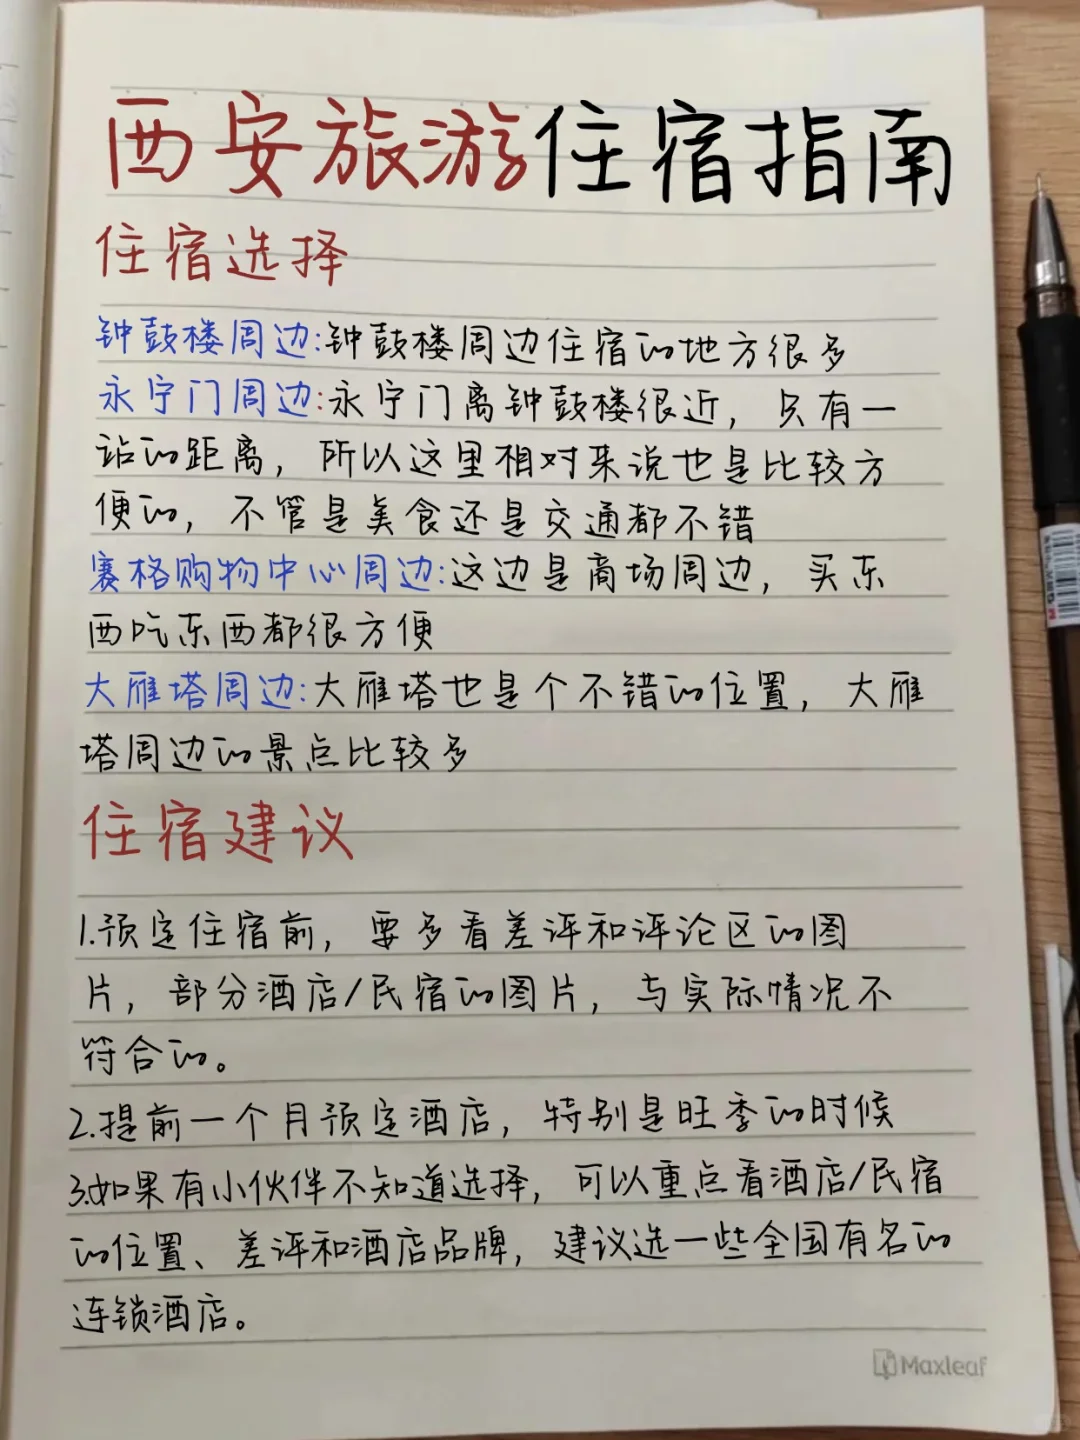 西安旅游住宿指南
住宿选择
钟鼓楼周边:钟鼓楼周边住宿的地方很多
永宁门周边:永宁门离钟鼓楼很近，只有一
站的距离，所以这里相对来说也是比较方
便的，不管是美食还是交通都不错
赛格购物中心周边:这边是商场周边，买东
西吃东西都很方便
大雁塔周边:大雁塔也是个不错的位置，大雁
塔周边的景点比较多
住宿建议
1.预定住宿前，要多看差评和评论区的图
片，部分酒店/民宿的图片，与实际情况不
符合的。
2.提前一个月预定酒店，特别是旺季的时候
3.如果有小伙伴不知道选择，可以重点看酒店/民宿
的位置、差评和酒店品牌，建议选一些全国有名的
连锁酒店。
Maxleaf